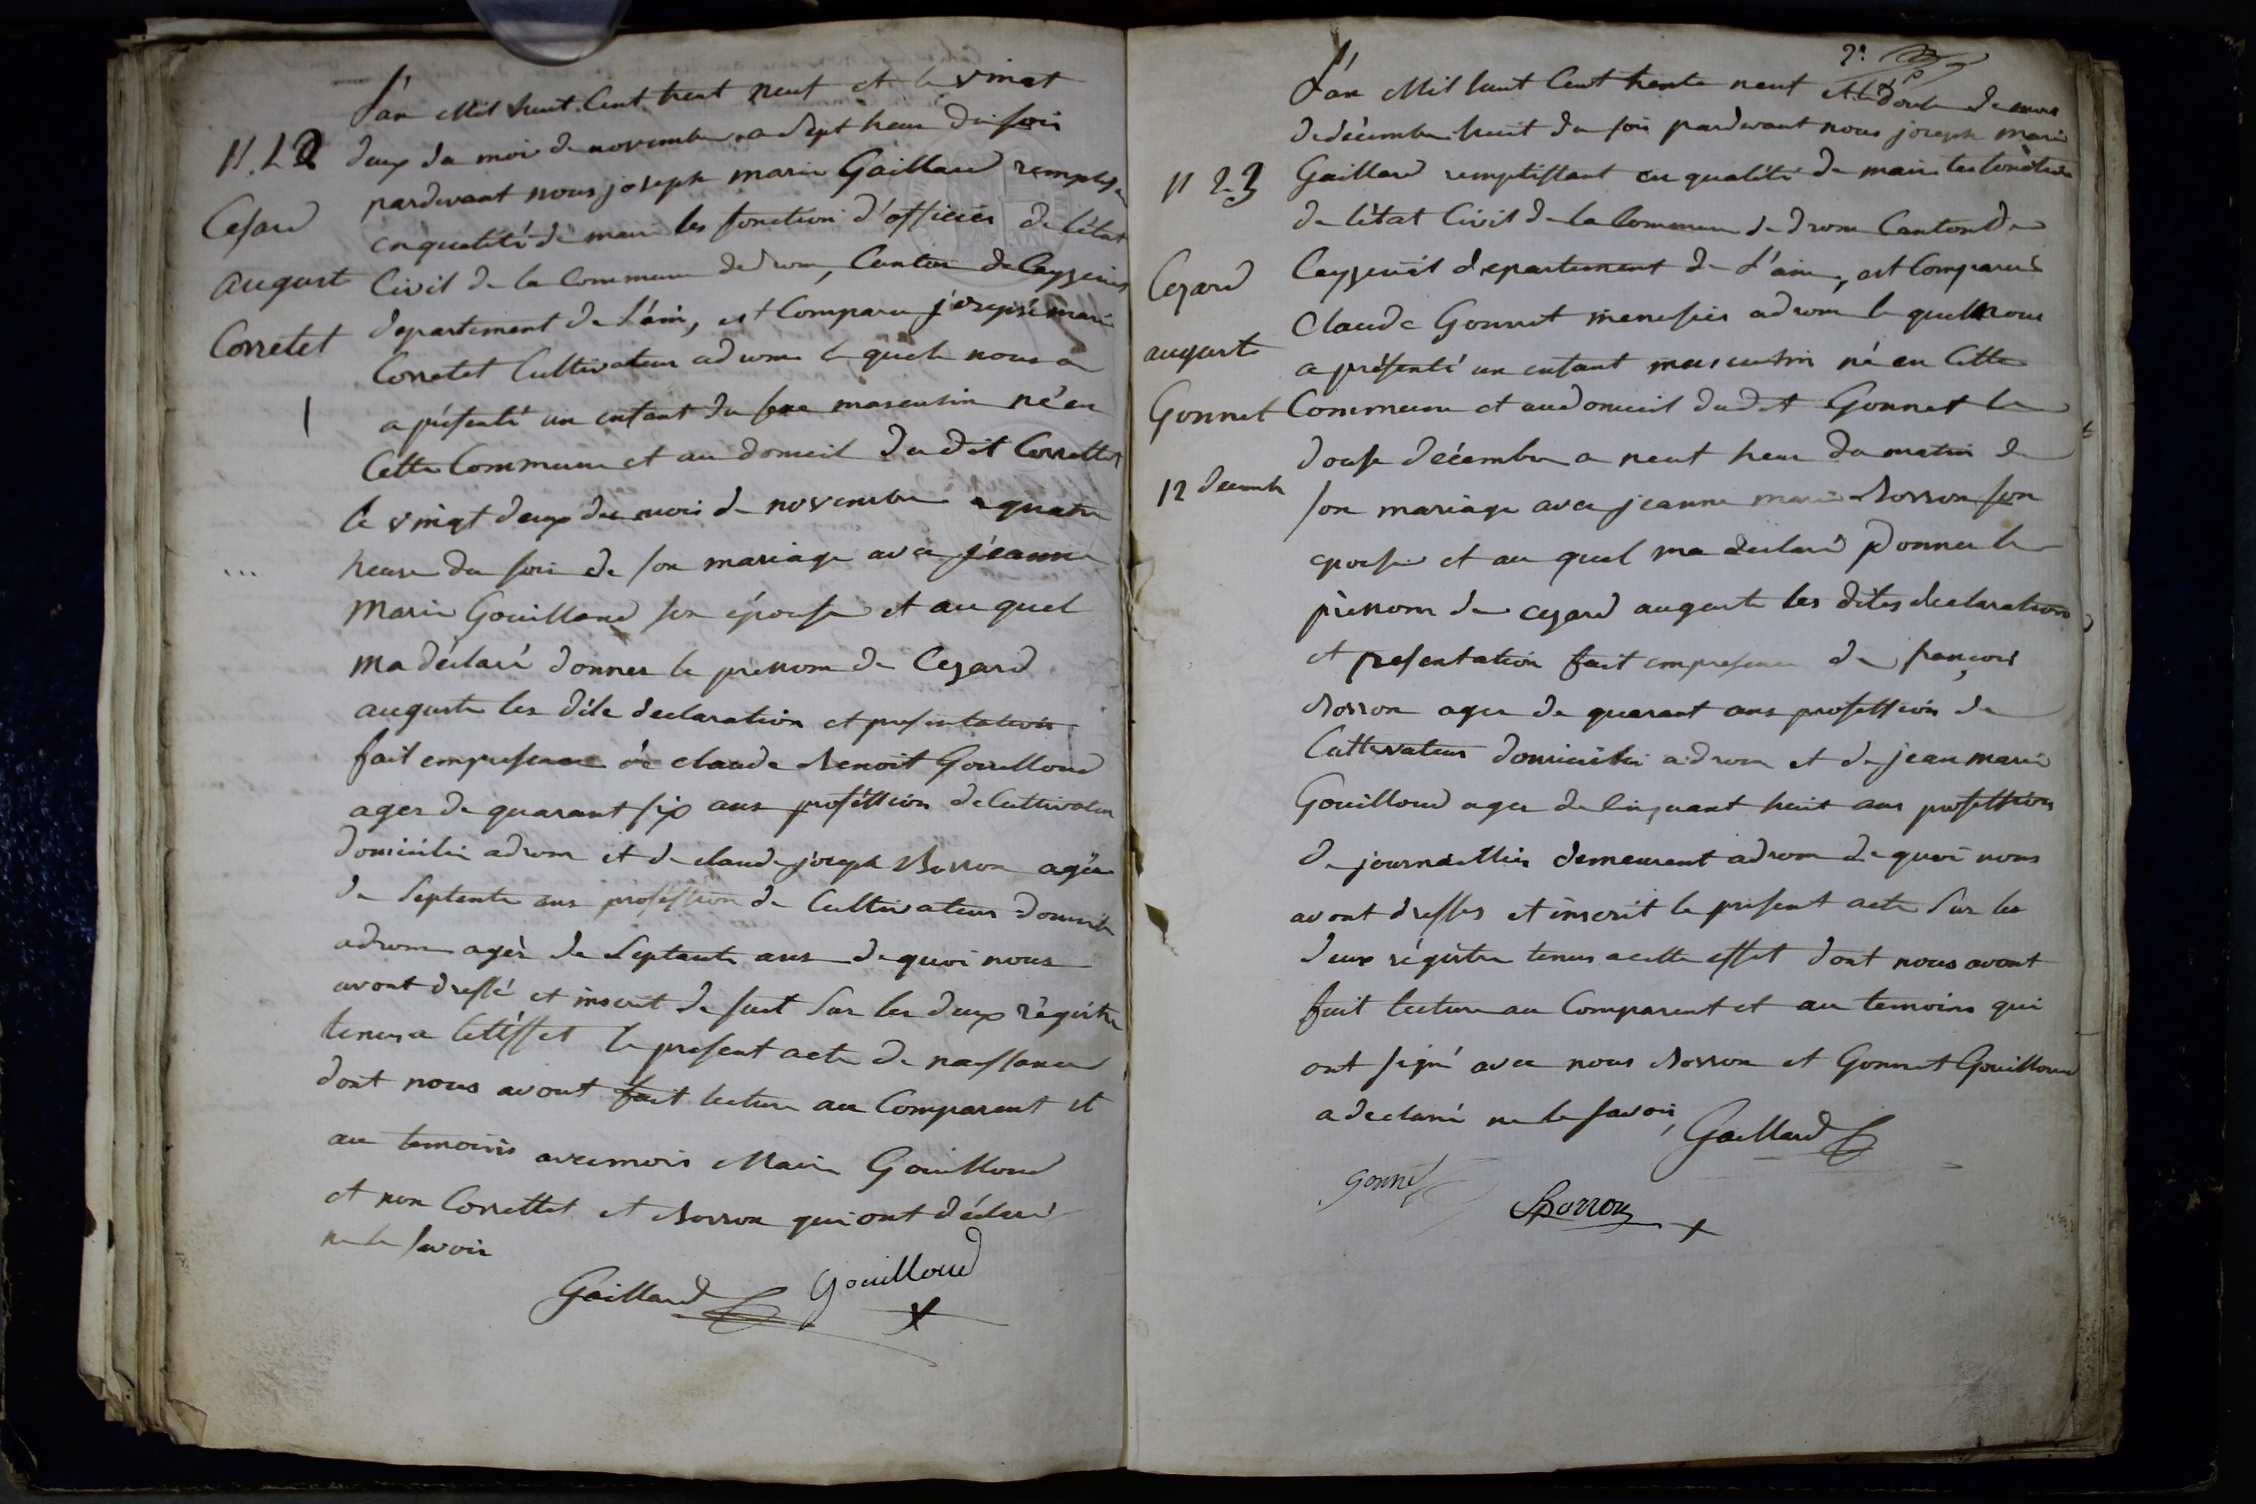 N. 22
Cesard
august
Corretet
L'an Mil huit Cent trent neuf et le vingt
deux du moi de novembre a Sept heur du soir
pardevant nous joseph marie Gaillard remplissa
en qualité de maire les fonction d'officier de l'état
Civil de la Commune de drom, Canton de Ceyzeriat
departement de L'ain, est Comparu joseph marie
Corretet Cultivateur a drom le quel nous a
a présenté un enfant du sexe masculin né en
Cette Commune et au domicil du dit Correttet
le vingt deux du mois de novembre a quatre
heure du soir de son mariage avec jeanne
Marie Gouilloud son épouse et au quel
ma déclaré donner le prenom de Cezard
auguste les dite declaration et presentation
fait empresence de claude Benoit Gouilloud
ager de quarant six ans proféssion de Cultivateur
domicilié a drom et de claude joseph Borron agée
de Septente ans profession de Cultivateur domicile
a drom agèr de Septente ans de quoi nous
avont dressé et inscrit de suit Sur les deux régistre
tenus a cet éffet le present acte de naissance
dont nous avont fait lecture au Comparent et
au temoins avec mois Maire Gouilloud
et non Correttet et Borron qui ont déclaré
ne le savoir
Gaillard Gouilloud
2e
N 23
Cezard
auguste
Gonnet
12 decembre
L'an Mil huit Cent trente neuf et le douse du mois
de décembre huit du soir pardevant nous joseph marie
Gaillard remplissant en qualité de maire les fonction
de l'état Civil de la Commune de drom Canton de
Ceyzeriat departement de L'ain, est Comparu
Claude Gonnet menusier a drom le quel nous
a présenté un enfant masculin né en Cette
Commune et au domicil dudit Gonnet le
douse décembre a neuf heur du matin de
son mariage avec jeanne marie Borron son
epouse et au quel ma declaré donner le
prenom de cezard auguste les dites declaration
et presentation fait empresence de françois
Borron ager de quarant ans proféssion de
Cultivateur domicilié a drom et de jean marie
Gouilloud ager de Cinquant huit ans profession
de journallier demeurent a drom de quoi nous
avont dresser et inscrit le present acte Sur les
deux régistre tenus a cette effet dont nous avont
fait lecture au Comparent et au temoins qui
ont signé avec nous Borron et Gonnet Gouilloud
a declaré ne le savoir, Gaillard
gonnet
Borron